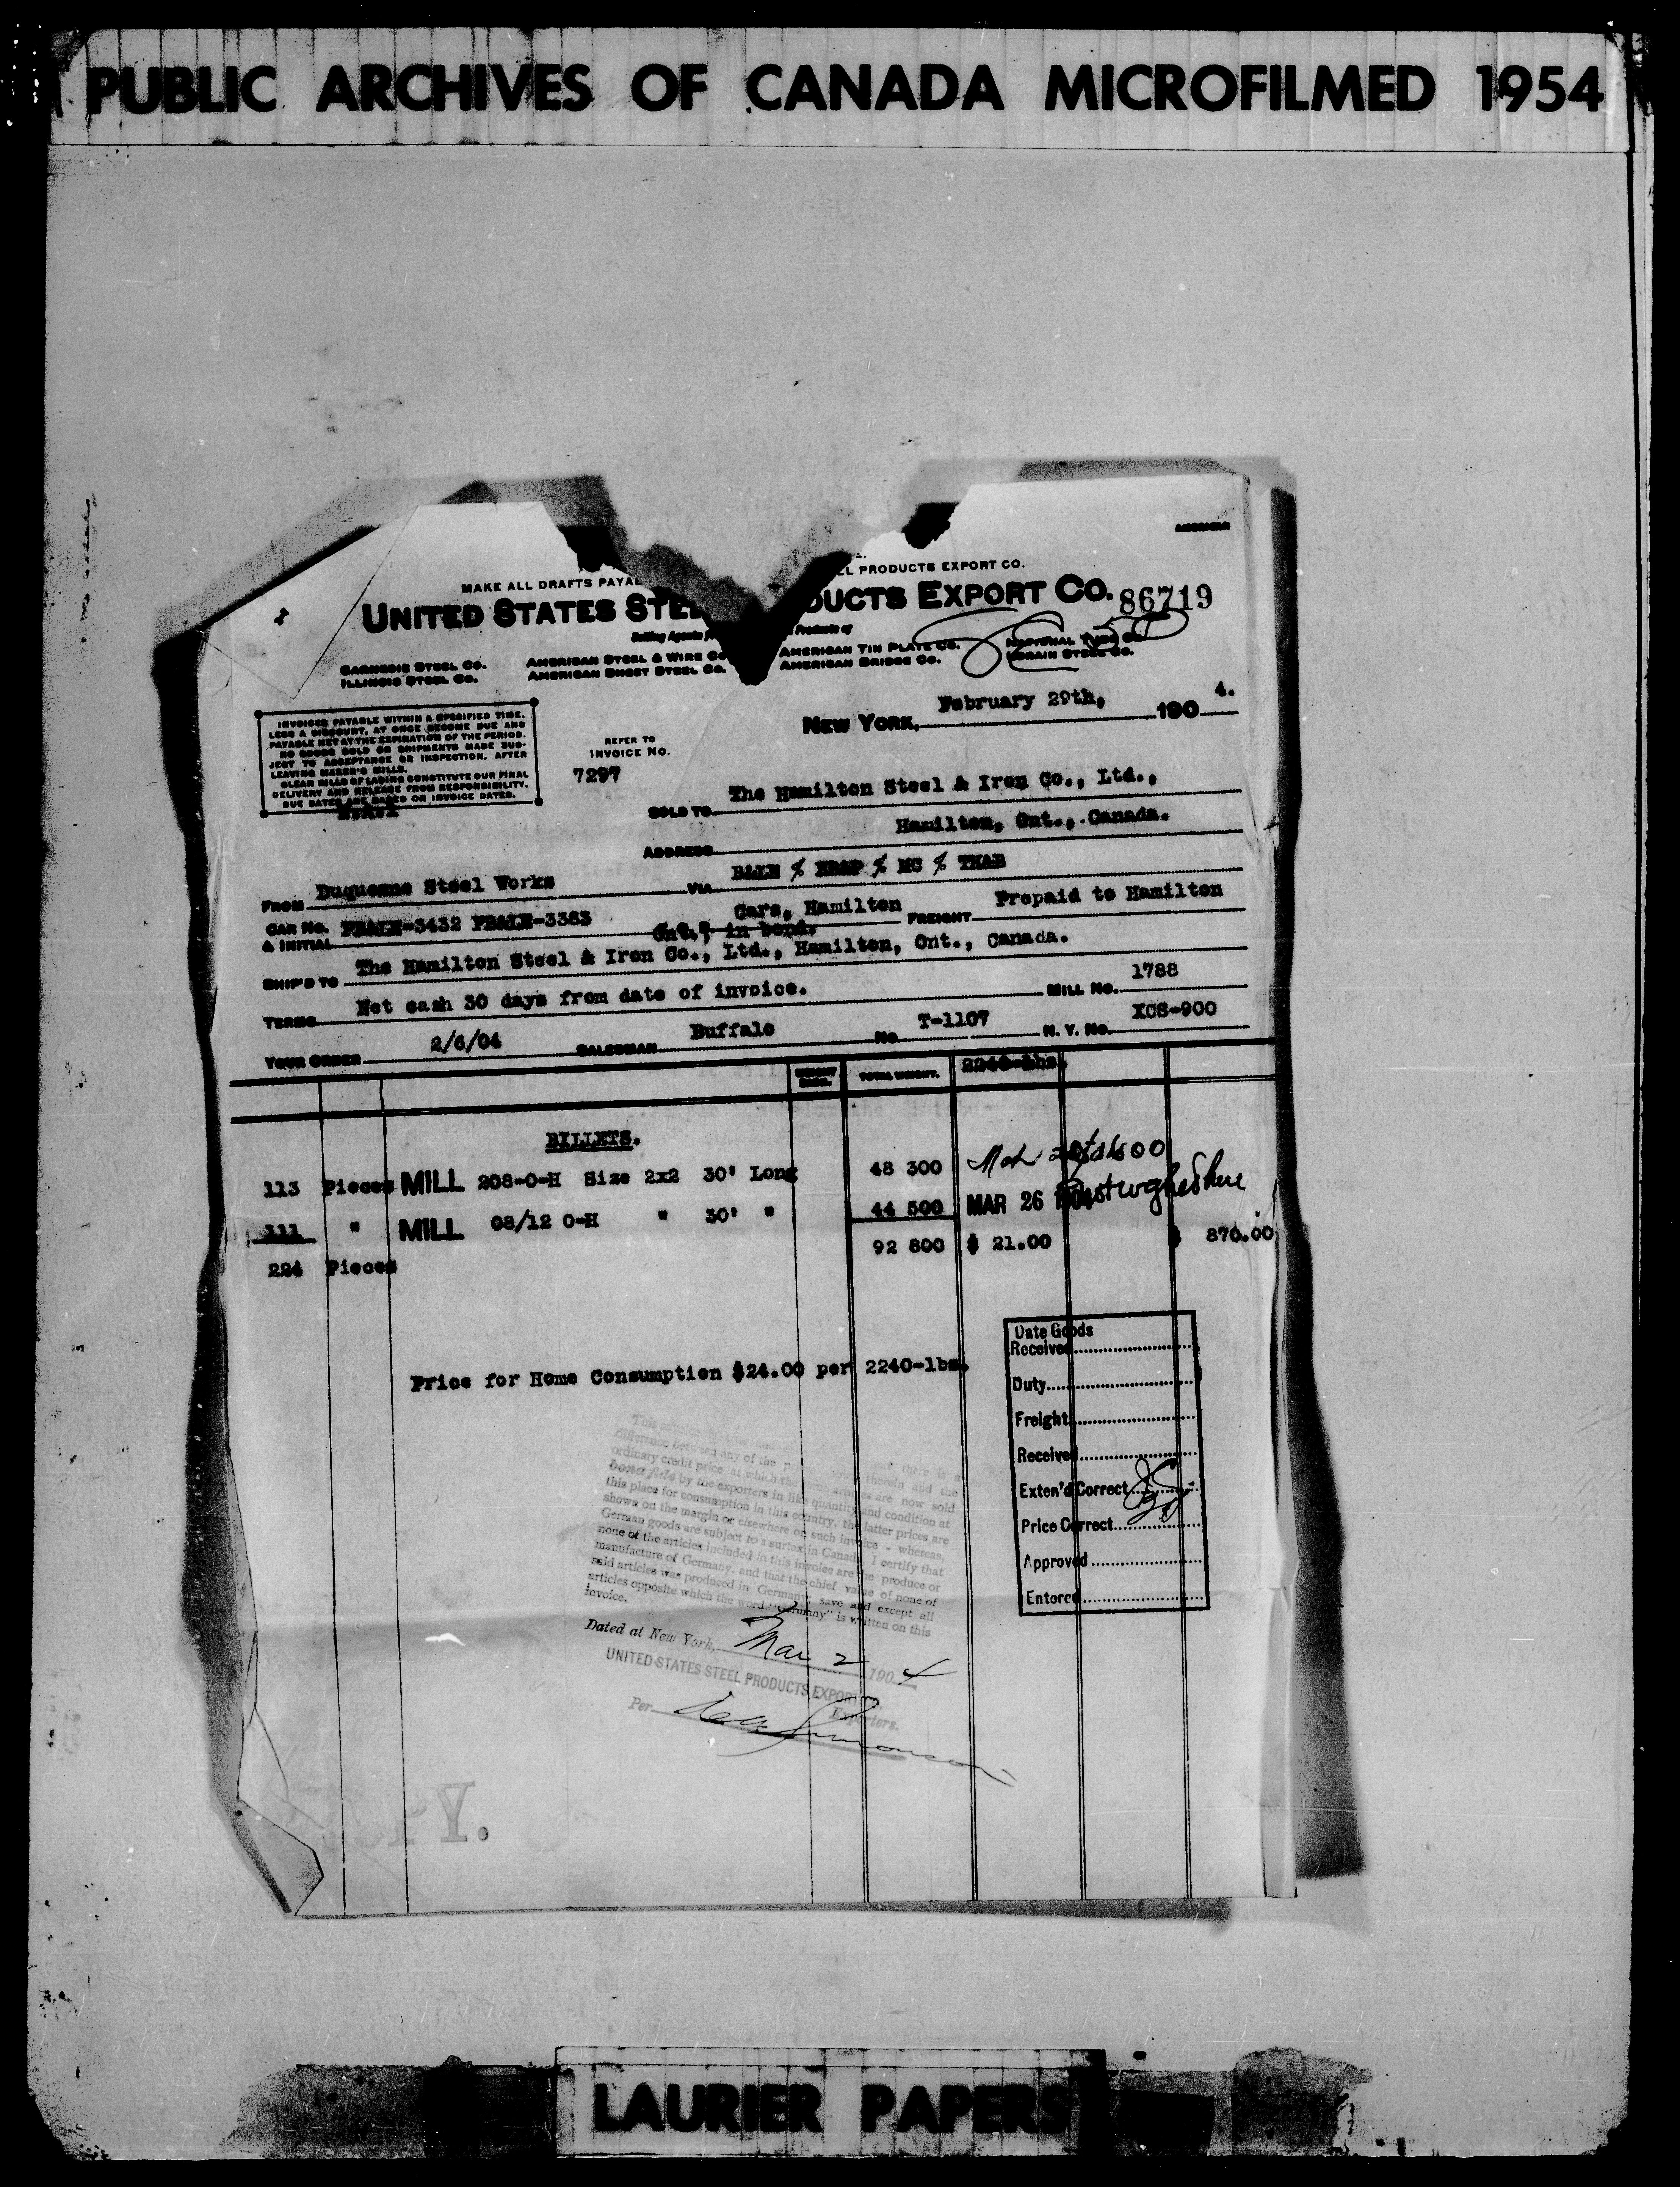 PUBLIC ARCHIVES OF CANADA MICROFILMED 1954
AMERICAN
MAKE ALL DRAFTS PAYAB EL PRODUCTS EXPORT CO.
UNITED STATES STEE DUCTS EXPORT CO. 86719
Selling Agents f Products of
CARNEGIE STEEL CO. AMERICAN STEEL & WIRE CO AMERICAN TIN PLATE CO. NATIONAL TUBE CO.
ILLINOIS STEEL CO. AMERICAN SHEET STEEL CO. AMERICAN BRIDGE CO. LORAIN STEEL CO.
NEW YORK, February 29th, 1904.
INVOICES PAYABLE WITHIN A SPECIFIED TIME,
LESS A DISCOUNT, AT ONCE BECOME DUE AND
PAYABLE NET AT THE EXPIRATION OF THE PERIOD.
NO GOODS SOLD OR SHIPMENTS MADE SUB-
JECT TO ACCEPTANCE OR INSPECTION, AFTER
LEAVING MAKER'S MILLS.
CLEAR BILLS OF LADING CONSTITUTE OUR FINAL
DELIVERY AND RELEASE FROM RESPONSIBILITY.
DUE DATES ARE BASED ON INVOICE DATES.
REFER TO
INVOICE NO.
7297
SOLD TO The Hamilton Steel & Iron Co., Ltd.,
ADDRESS Hamilton, Ont., Canada.
FROM Duquesne Steel Works VIA
CAR NO. & INITIAL PB&LE-3432 PB&LE-3383 Cars, Hamilton Ont., in bond. FREIGHT Prepaid to Hamilton
SHIP'D TO The Hamilton Steel & Iron Co., Ltd., Hamilton, Ont., Canada.
TERMS Net cash 30 days from date of invoice. MILL NO. 1788
YOUR ORDER 2/6/04 SALESMAN Buffalo NO. T-1107 N. Y. NO. XCS-900
WEIGHT EACH. TOTAL WEIGHT. 2240-lbs.
BILLETS.
113 Pieces MILL 208-O-H Size 2x2 30' Long 48 300
111 " MILL 08/12 O-H " 30' " 44 500 MAR 26
224 Pieces 92 800 $ 21.00 $ 870.00
Price for Home Consumption $24.00 per 2240-lbs.
Date Goods
Received
Duty
Freight
Received
Exten'd Correct
Price Correct
Approved
Entered
difference between any of the therein and the
ordinary credit price at which the same articles are now sold
bona fide by the exporters in like quantity and condition at
this place for consumption in this country, the latter prices are
shown on the margin or elsewhere on such invoice - whereas,
German goods are subject to a surtax in Canada, I certify that
none of the articles included in this invoice are the produce or
manufacture of Germany, and that the chief value of none of
said articles was produced in Germany, save and except all
articles opposite which the word "Germany" is written on this
invoice.
Dated at New York, Mar 2 1904
UNITED STATES STEEL PRODUCTS EXPORT
Exporters.
Per
Y.
LAURIER PAPERS